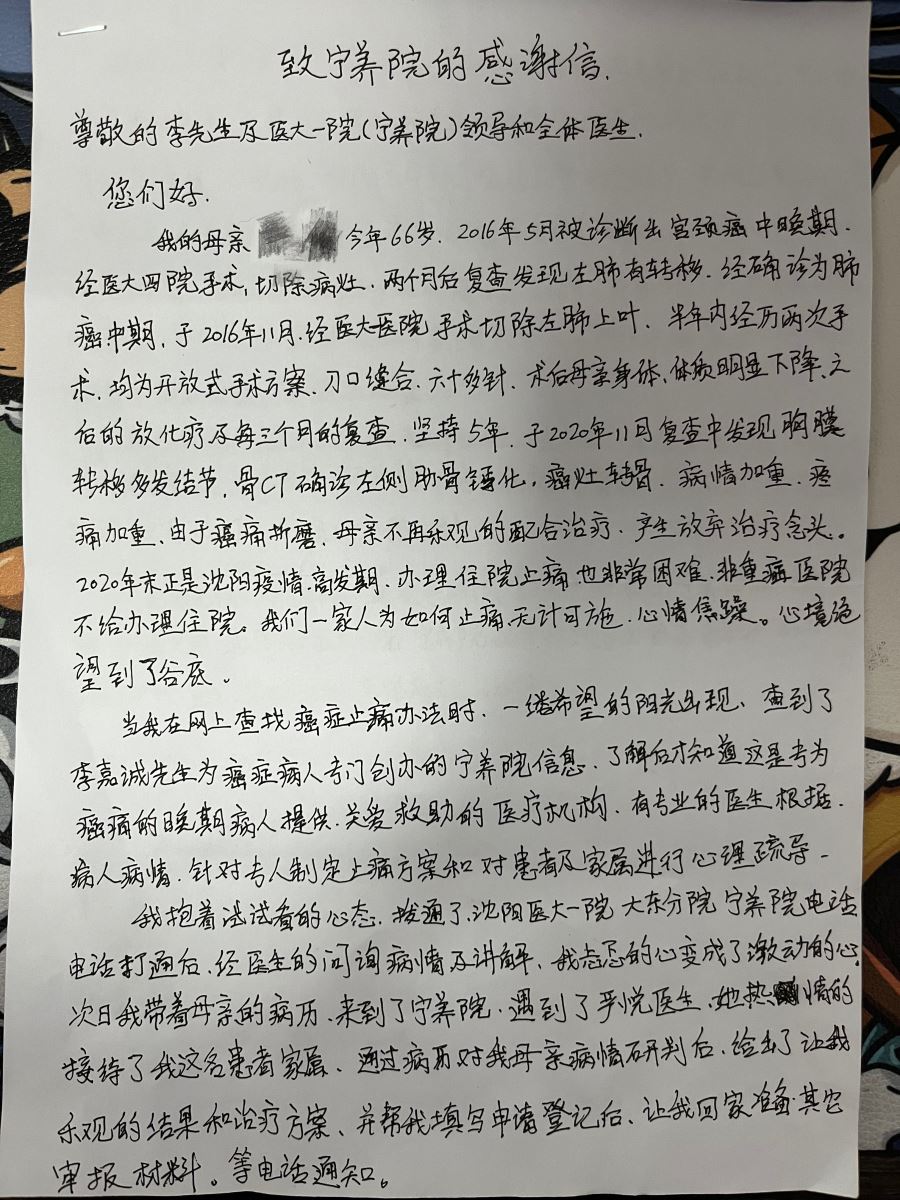 致宁养院的感谢信.
尊敬的李先生及医大一院(宁养院)领导和全体医生.
您们好.
我的母亲 今年66岁. 2016年5月被诊断出宫颈癌中晚期.
经医大四院手术,切除病灶.两个月后复查发现左肺有转移.经确诊为肺
癌中期,于2016年11月.经医大医院手术切除左肺上叶、半年内经历两次手
术,均为开放式手术方案.刀口缝合.六十多针.术后母亲身体、体质明显下降、之
后的放化疗及每三个月的复查.坚持5年.于2020年11月复查中发现胸膜
转移多发结节,骨CT确诊左侧肋骨钙化,癌灶转骨.病情加重.疼
痛加重、由于癌痛折磨、母亲不再乐观的配合治疗.产生放弃治疗念头。
2020年末正是沈阳疫情.高发期.办理住院止痛也非常困难.非重病医院
不给办理住院。我们一家人为如何止痛无计可施.心情焦躁。心境绝
望到了谷底。
当我在网上查找癌症止痛办法时.一绪希望的阳光出现、查到了
李嘉诚先生为癌症病人专门创办的宁养院信息、了解后才知道这是专为
癌痛的晚期病人提供.关爱救助的医疗机构、有专业的医生根据.
病人病情.针对专人制定止痛方案和对患者及家属进行心理疏导.
我抱着试试看的心态.拨通了沈阳医大一院大东分院宁养院电话
电话打通后、经医生的问询病情及讲解、我忐忑的心变成了激动的心.
次日我带着母亲的病历.来到了宁养院.遇到了尹悦医生.她热情的
接待了我这名患者家属、通过病历对我母亲病情研判后、给出了让我
乐观的结果和治疗方案、并帮我填写申请登记后、让我回家准备其它
审报材料。等电话通知。